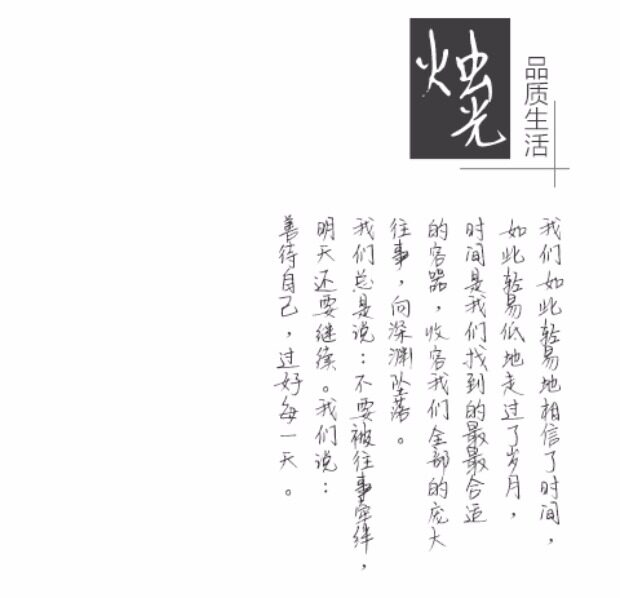 品质生活
烛光
我们如此轻易地相信了时间，
如此轻易低地走过了岁月，
时间是我们找到的最最合适
的容器，收容我们全部的庞大
往事，向深渊坠落。
我们总是说：不要被往事牵绊，
明天还要继续。我们说：
善待自己，过好每一天。